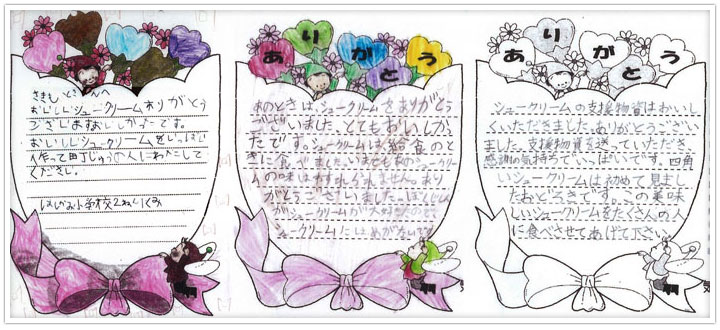 おいしいシュークリームありがとう
ございますおいしかったです。
おいしいシュークリームをいっぱい
作って町じゅうの人にわたして
ください。
小学校2ねん1くみ
ありがとう
あのときはシュークリームをありがとう
ございました。とてもおいしかっ
たです。シュークリームは給食のと
きに食べました。いまでもあのシュークリー
ムの味はわすれられません。あり
がとうございました。ぼくじしん
がシュークリームが大好きなので
シュークリームにはめがないです
ありがとう
シュークリームの支援物資はおいし
くいただきました。ありがとうござい
ました。支援物資を送っていただき、
感謝の気持ちでいっぱいです。四角
いシュークリームは初めて見まし
たおどろきです。この美味
しいシュークリームをたくさんの人
に食べさせてあげて下さい。